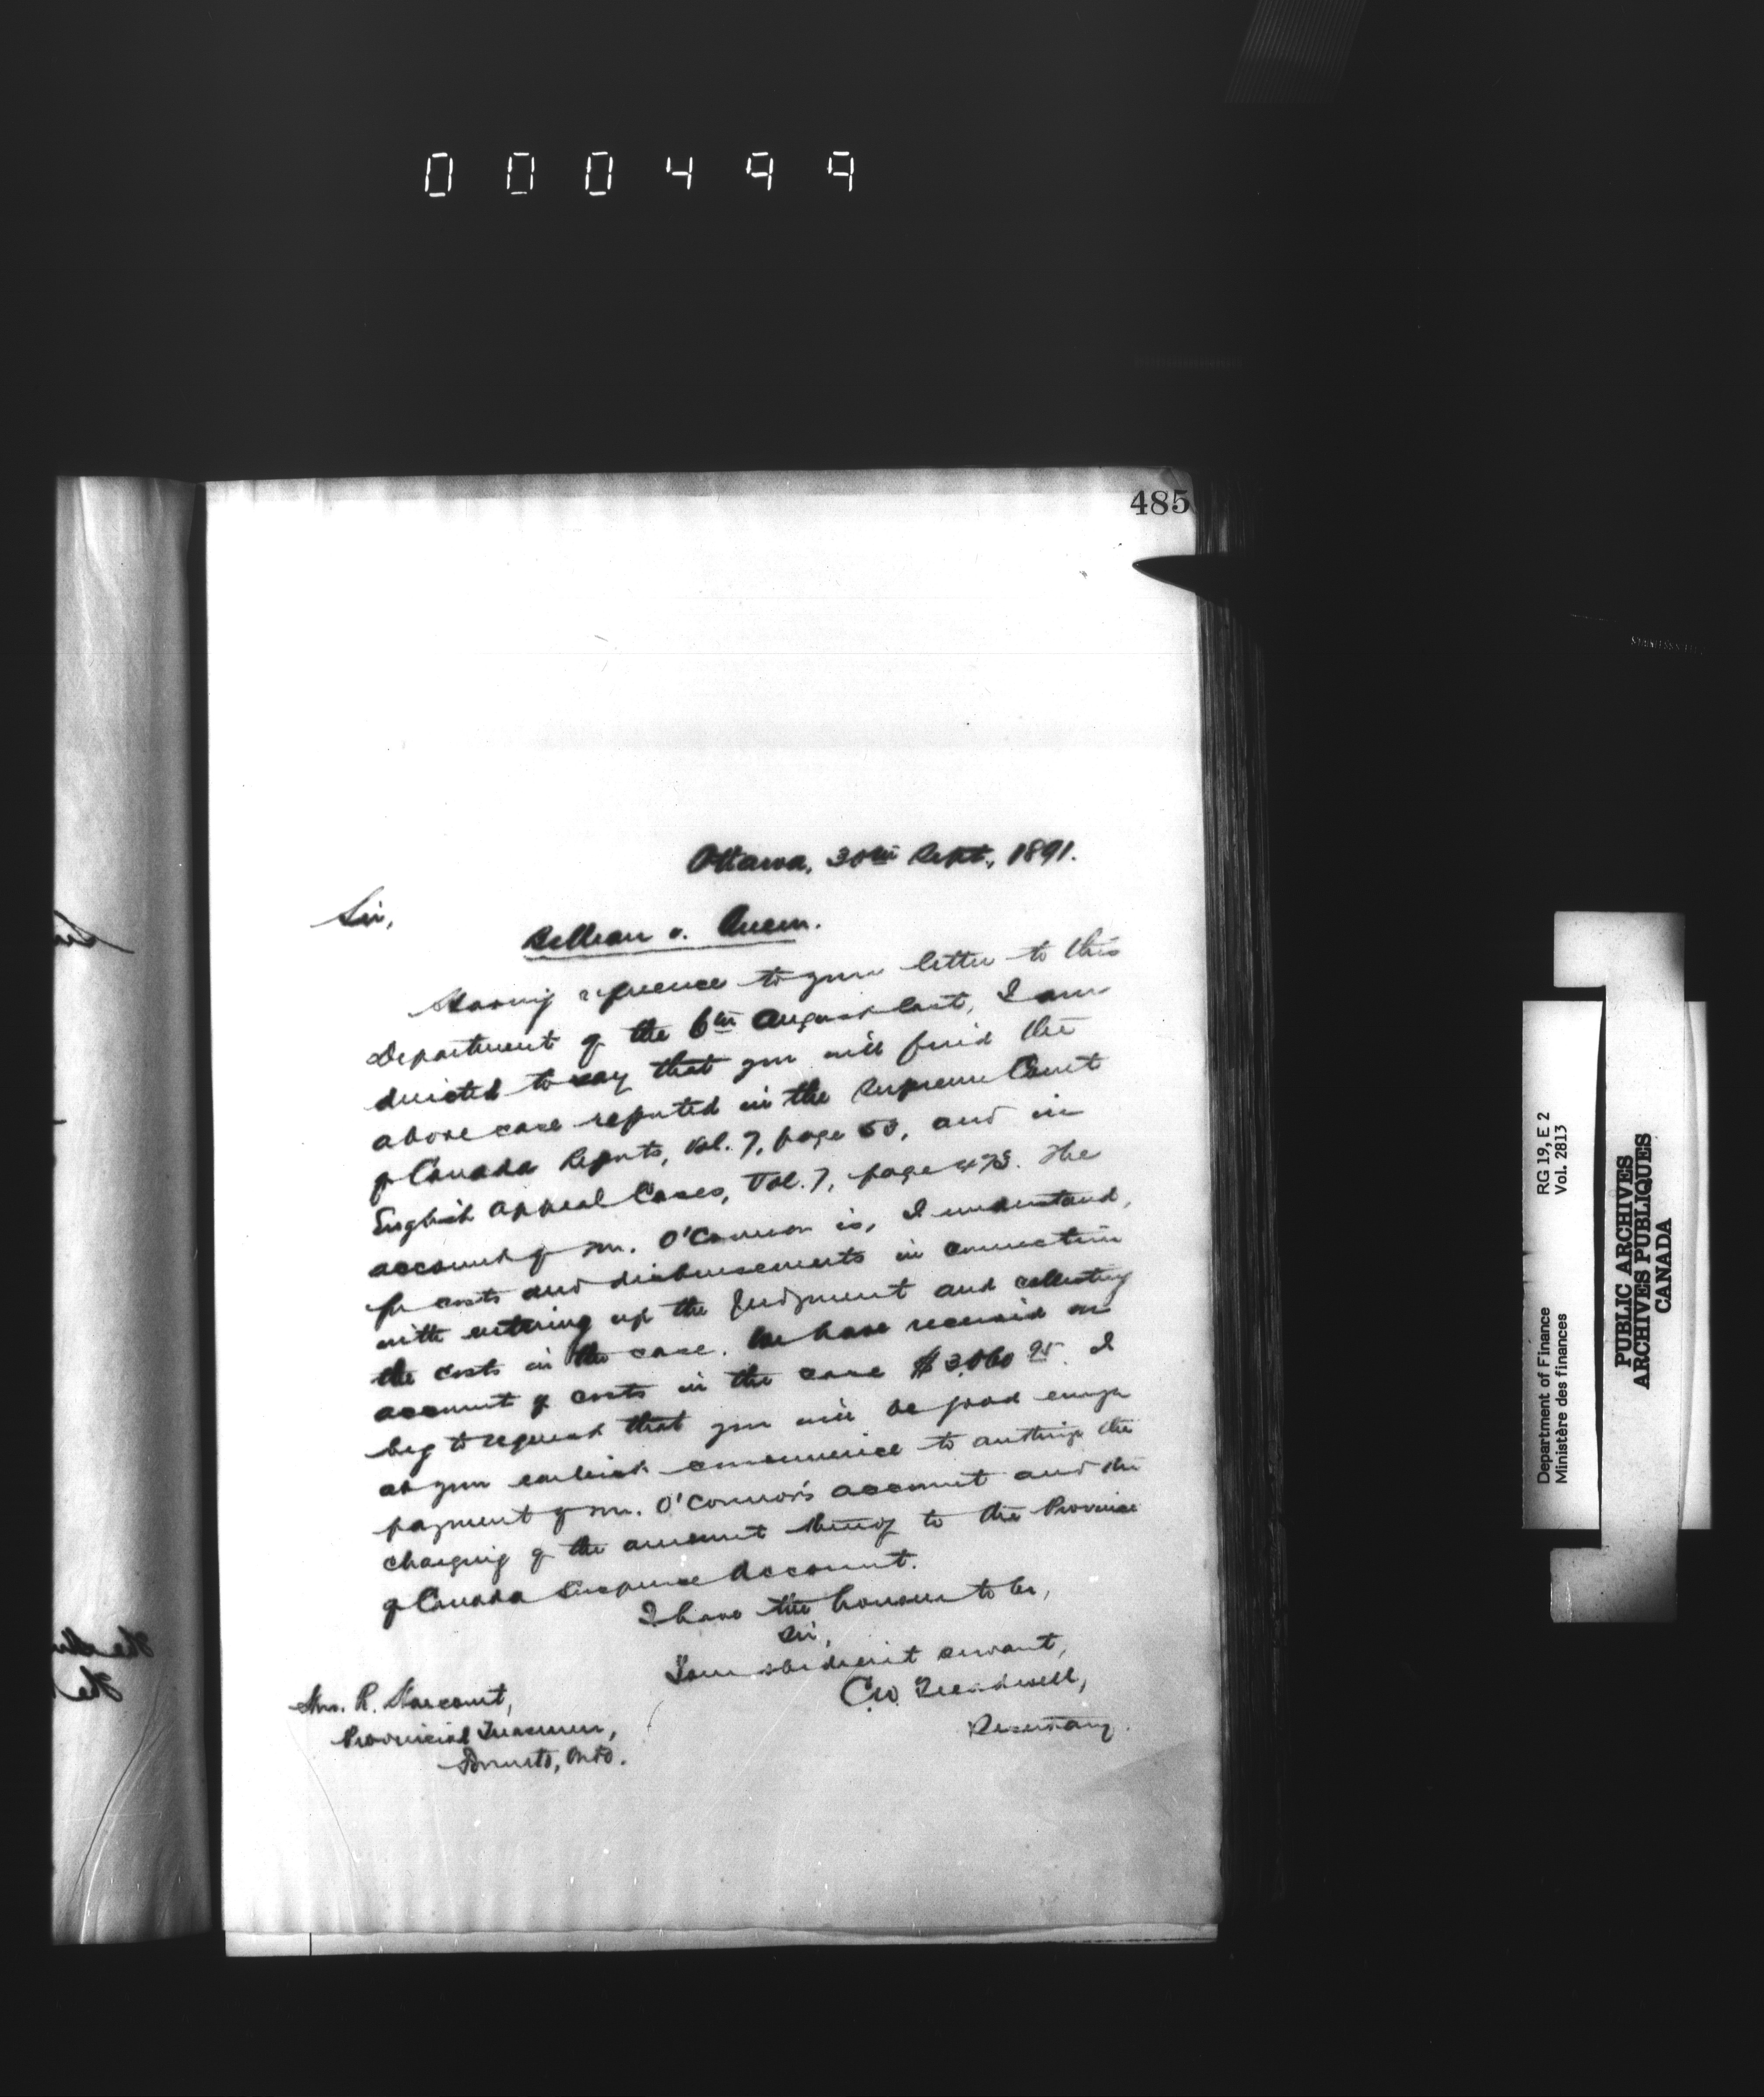 000499
485
Ottawa, 30th Sept., 1891.
Sir,
Belleau v. Queen.
Having reference to your letter to this
Department of the 6th August last, I am
directed to say that you will find the
above case reported in the Supreme Court
of Canada Reports, Vol. 7, page 53, and in
English Appeal Cases, Vol. 7, page 473. The
account of Mr. O'Connor is, I understand,
for costs and disbursements in connection
with entering up the Judgment and collecting
the costs in the case. We have received on
account of costs in the case $3,060 95. I
beg to request that you will be good enough
at your earliest convenience to authorize the
payment of Mr. O'Connor's account and the
charging of the amount thereof to the Province
of Canada Suspense Account.
I have the honour to be,
Sir,
Your obedient servant,
C.W. Treadwell,
Secretary.
Hon. R. Harcourt,
Provincial Treasurer,
Toronto, Onto.
Department of Finance RG 19, E 2
Ministère des finances Vol. 2813
PUBLIC ARCHIVES
ARCHIVES PUBLIQUES
CANADA